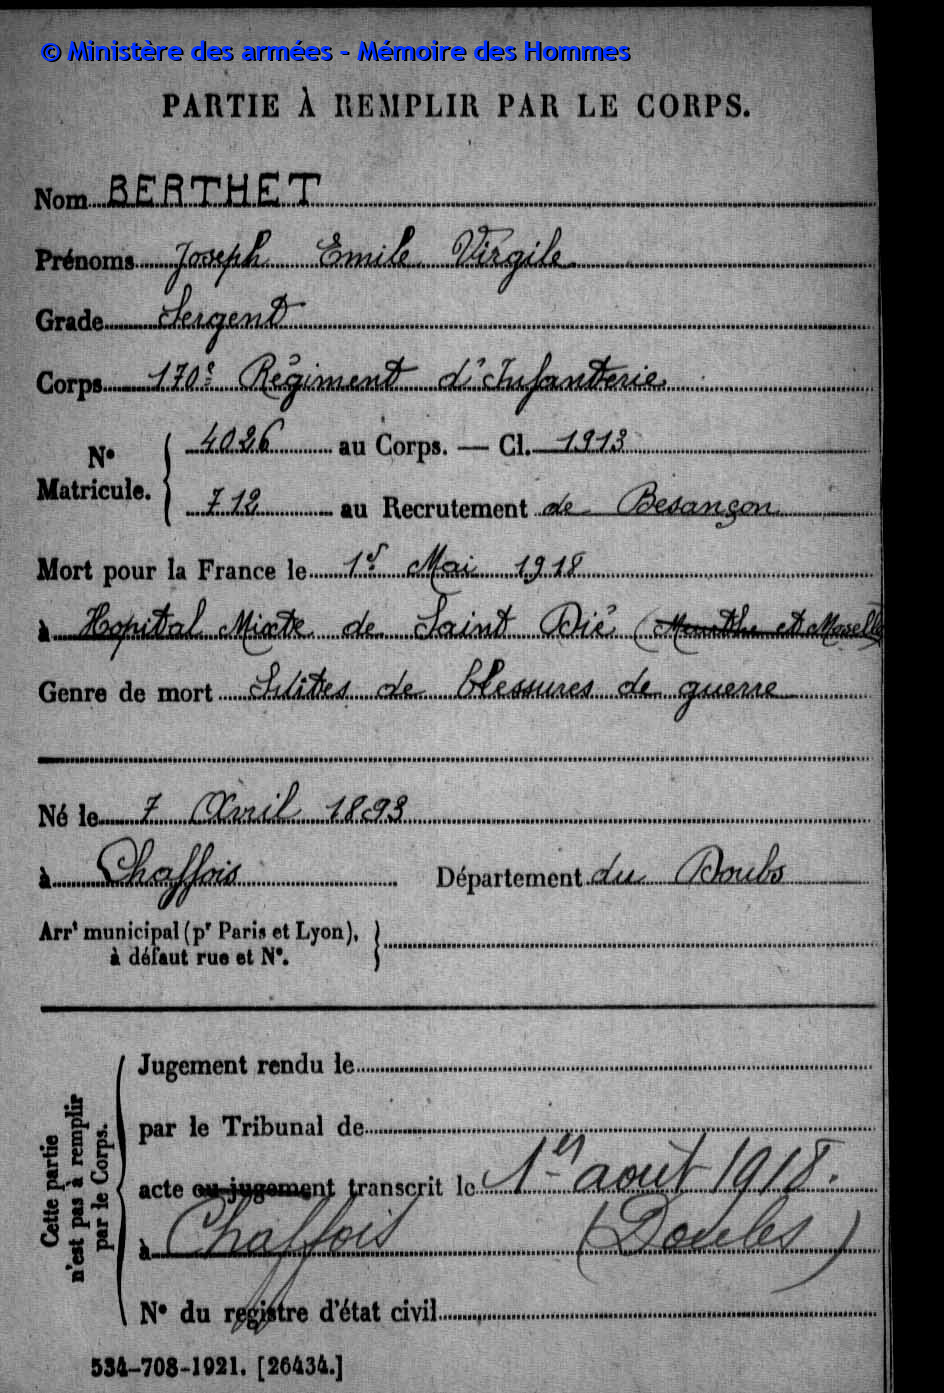 © Ministère des armées - Mémoire des Hommes
PARTIE À REMPLIR PAR LE CORPS.
Nom BERTHET
Prénoms Joseph Emile Virgile
Grade Sergent
Corps 170e Régiment d'Infanterie
N° Matricule. { 4026 au Corps. — Cl. 1913
712 au Recrutement de Besançon
Mort pour la France le 1er Mai 1918
à Hopital Mixte de Saint Dié (Meurthe et Moselle)
Genre de mort Suites de blessures de guerre
Né le 7 Avril 1893
à Chaffois Département du Doubs
Arrt municipal (pr Paris et Lyon), }
à défaut rue et N°.
Cette partie n'est pas à remplir par le Corps. {
Jugement rendu le
par le Tribunal de
acte ou jugement transcrit le 1er août 1918.
à Chaffois (Doubs)
N° du registre d'état civil
534-708-1921. [26434.]